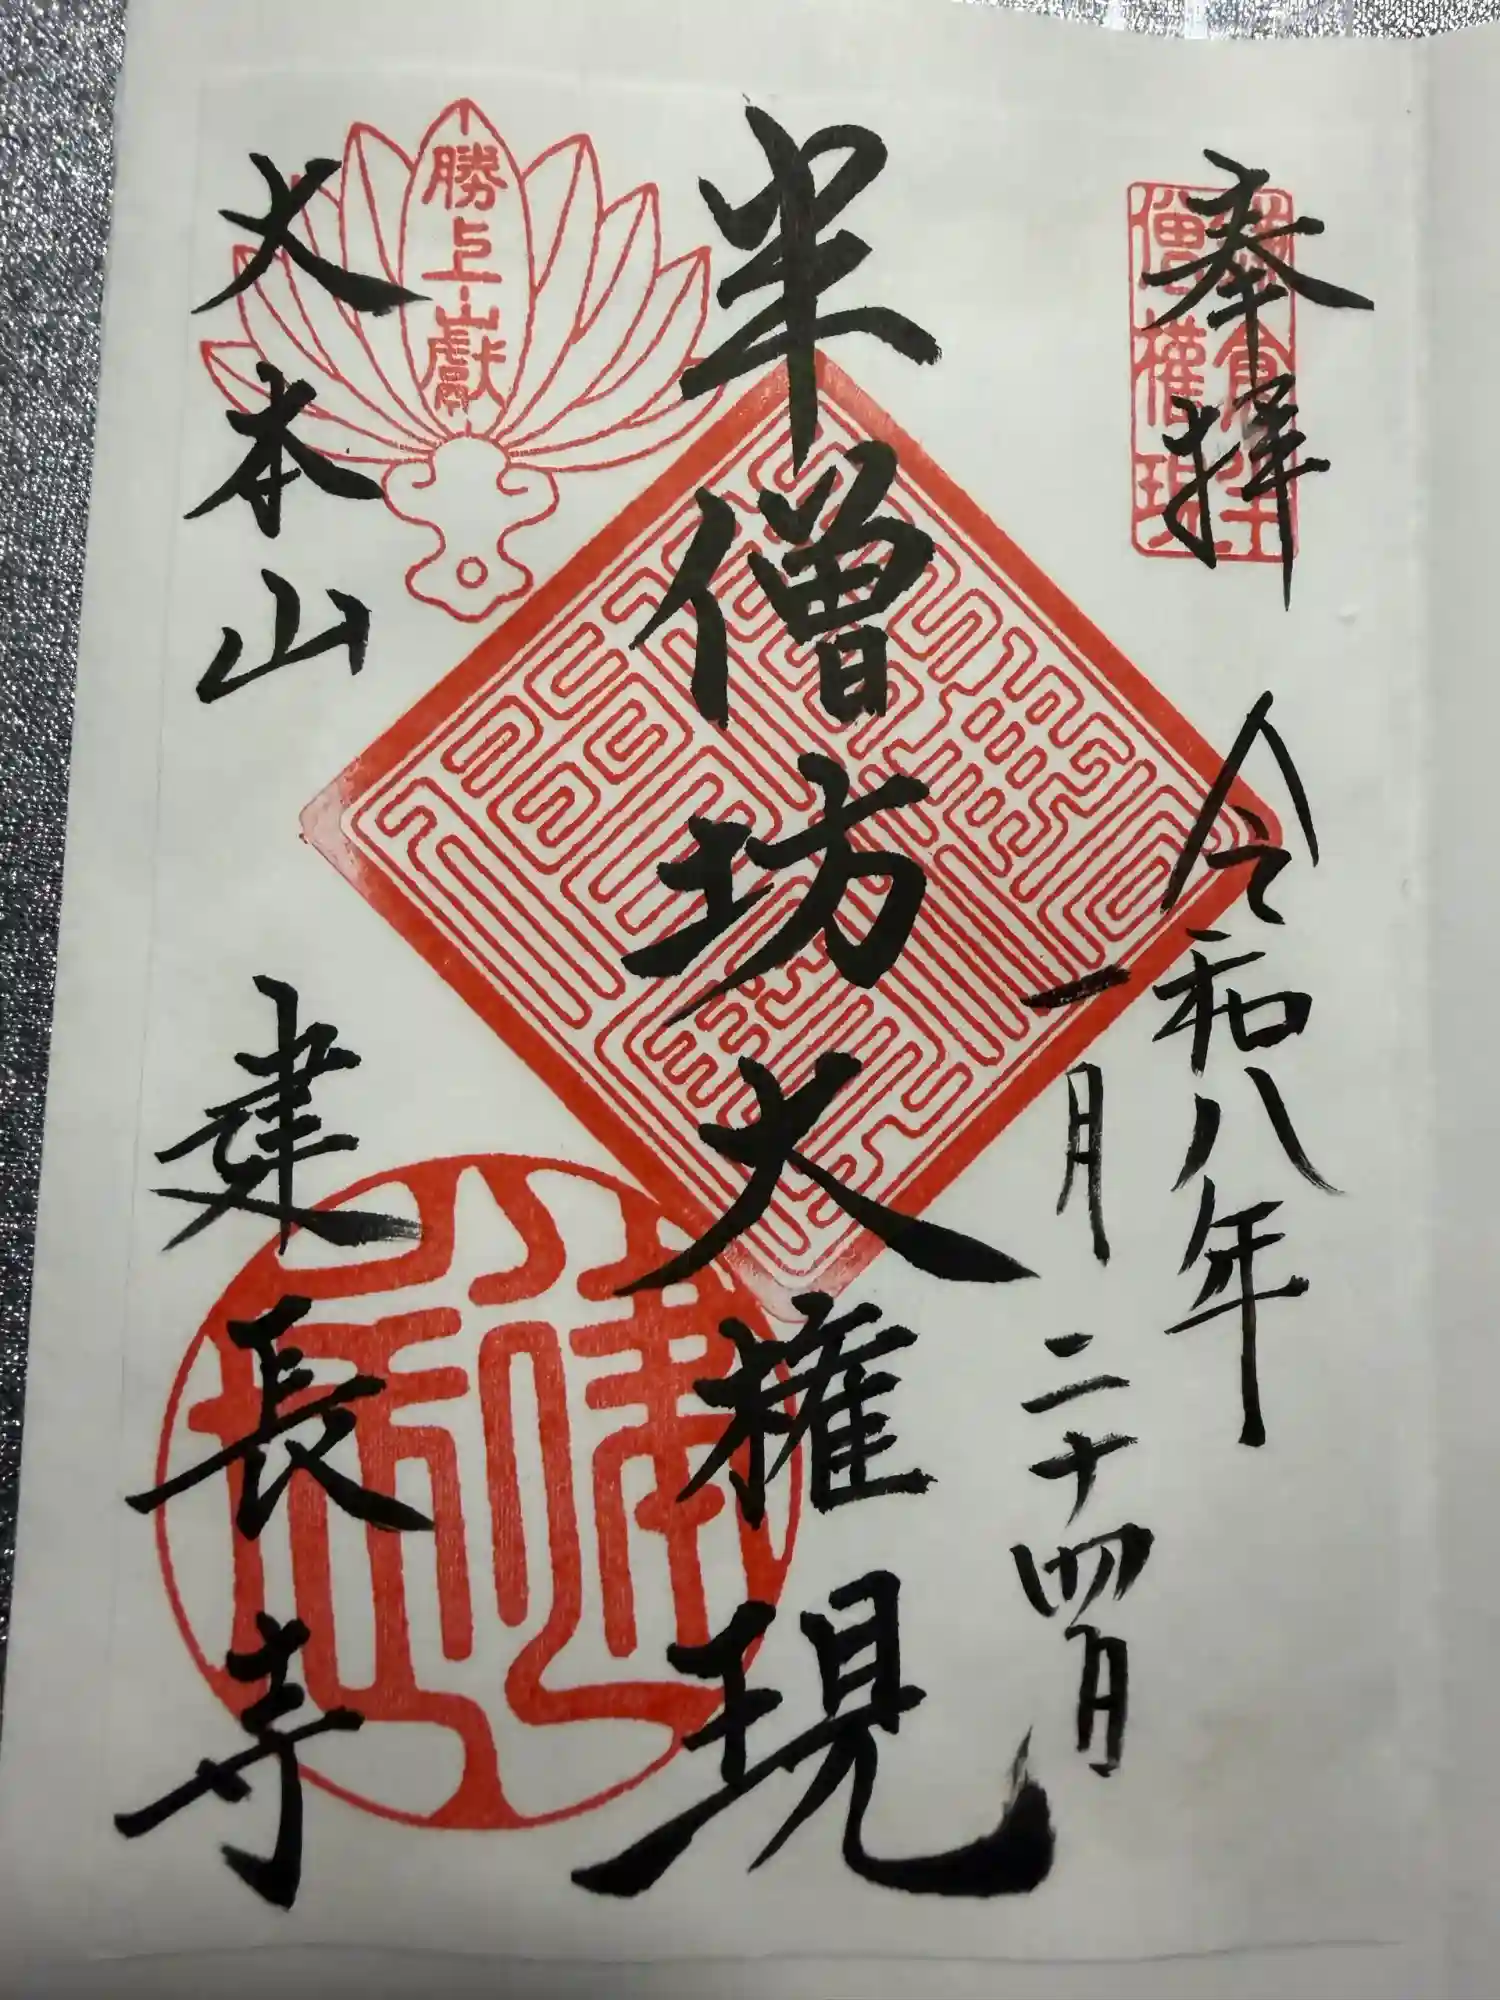 奉拝
令和八年
一月二十四日
半僧坊大権現
勝上山獻
大本山
建長寺